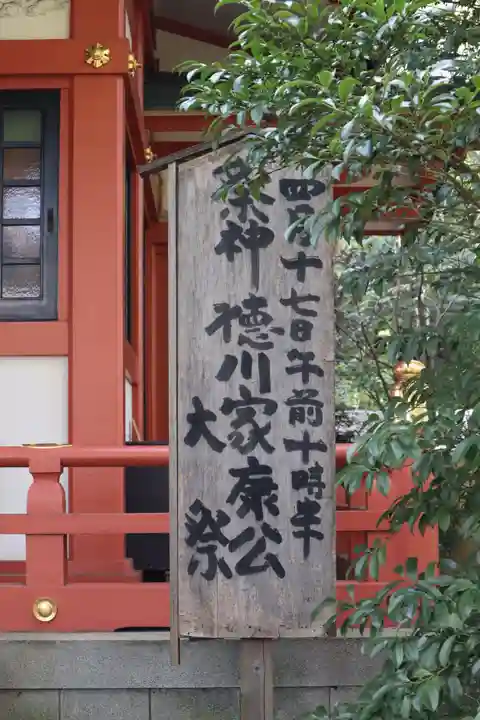 四月十七日午前十時半
祭神 徳川家康公
大祭